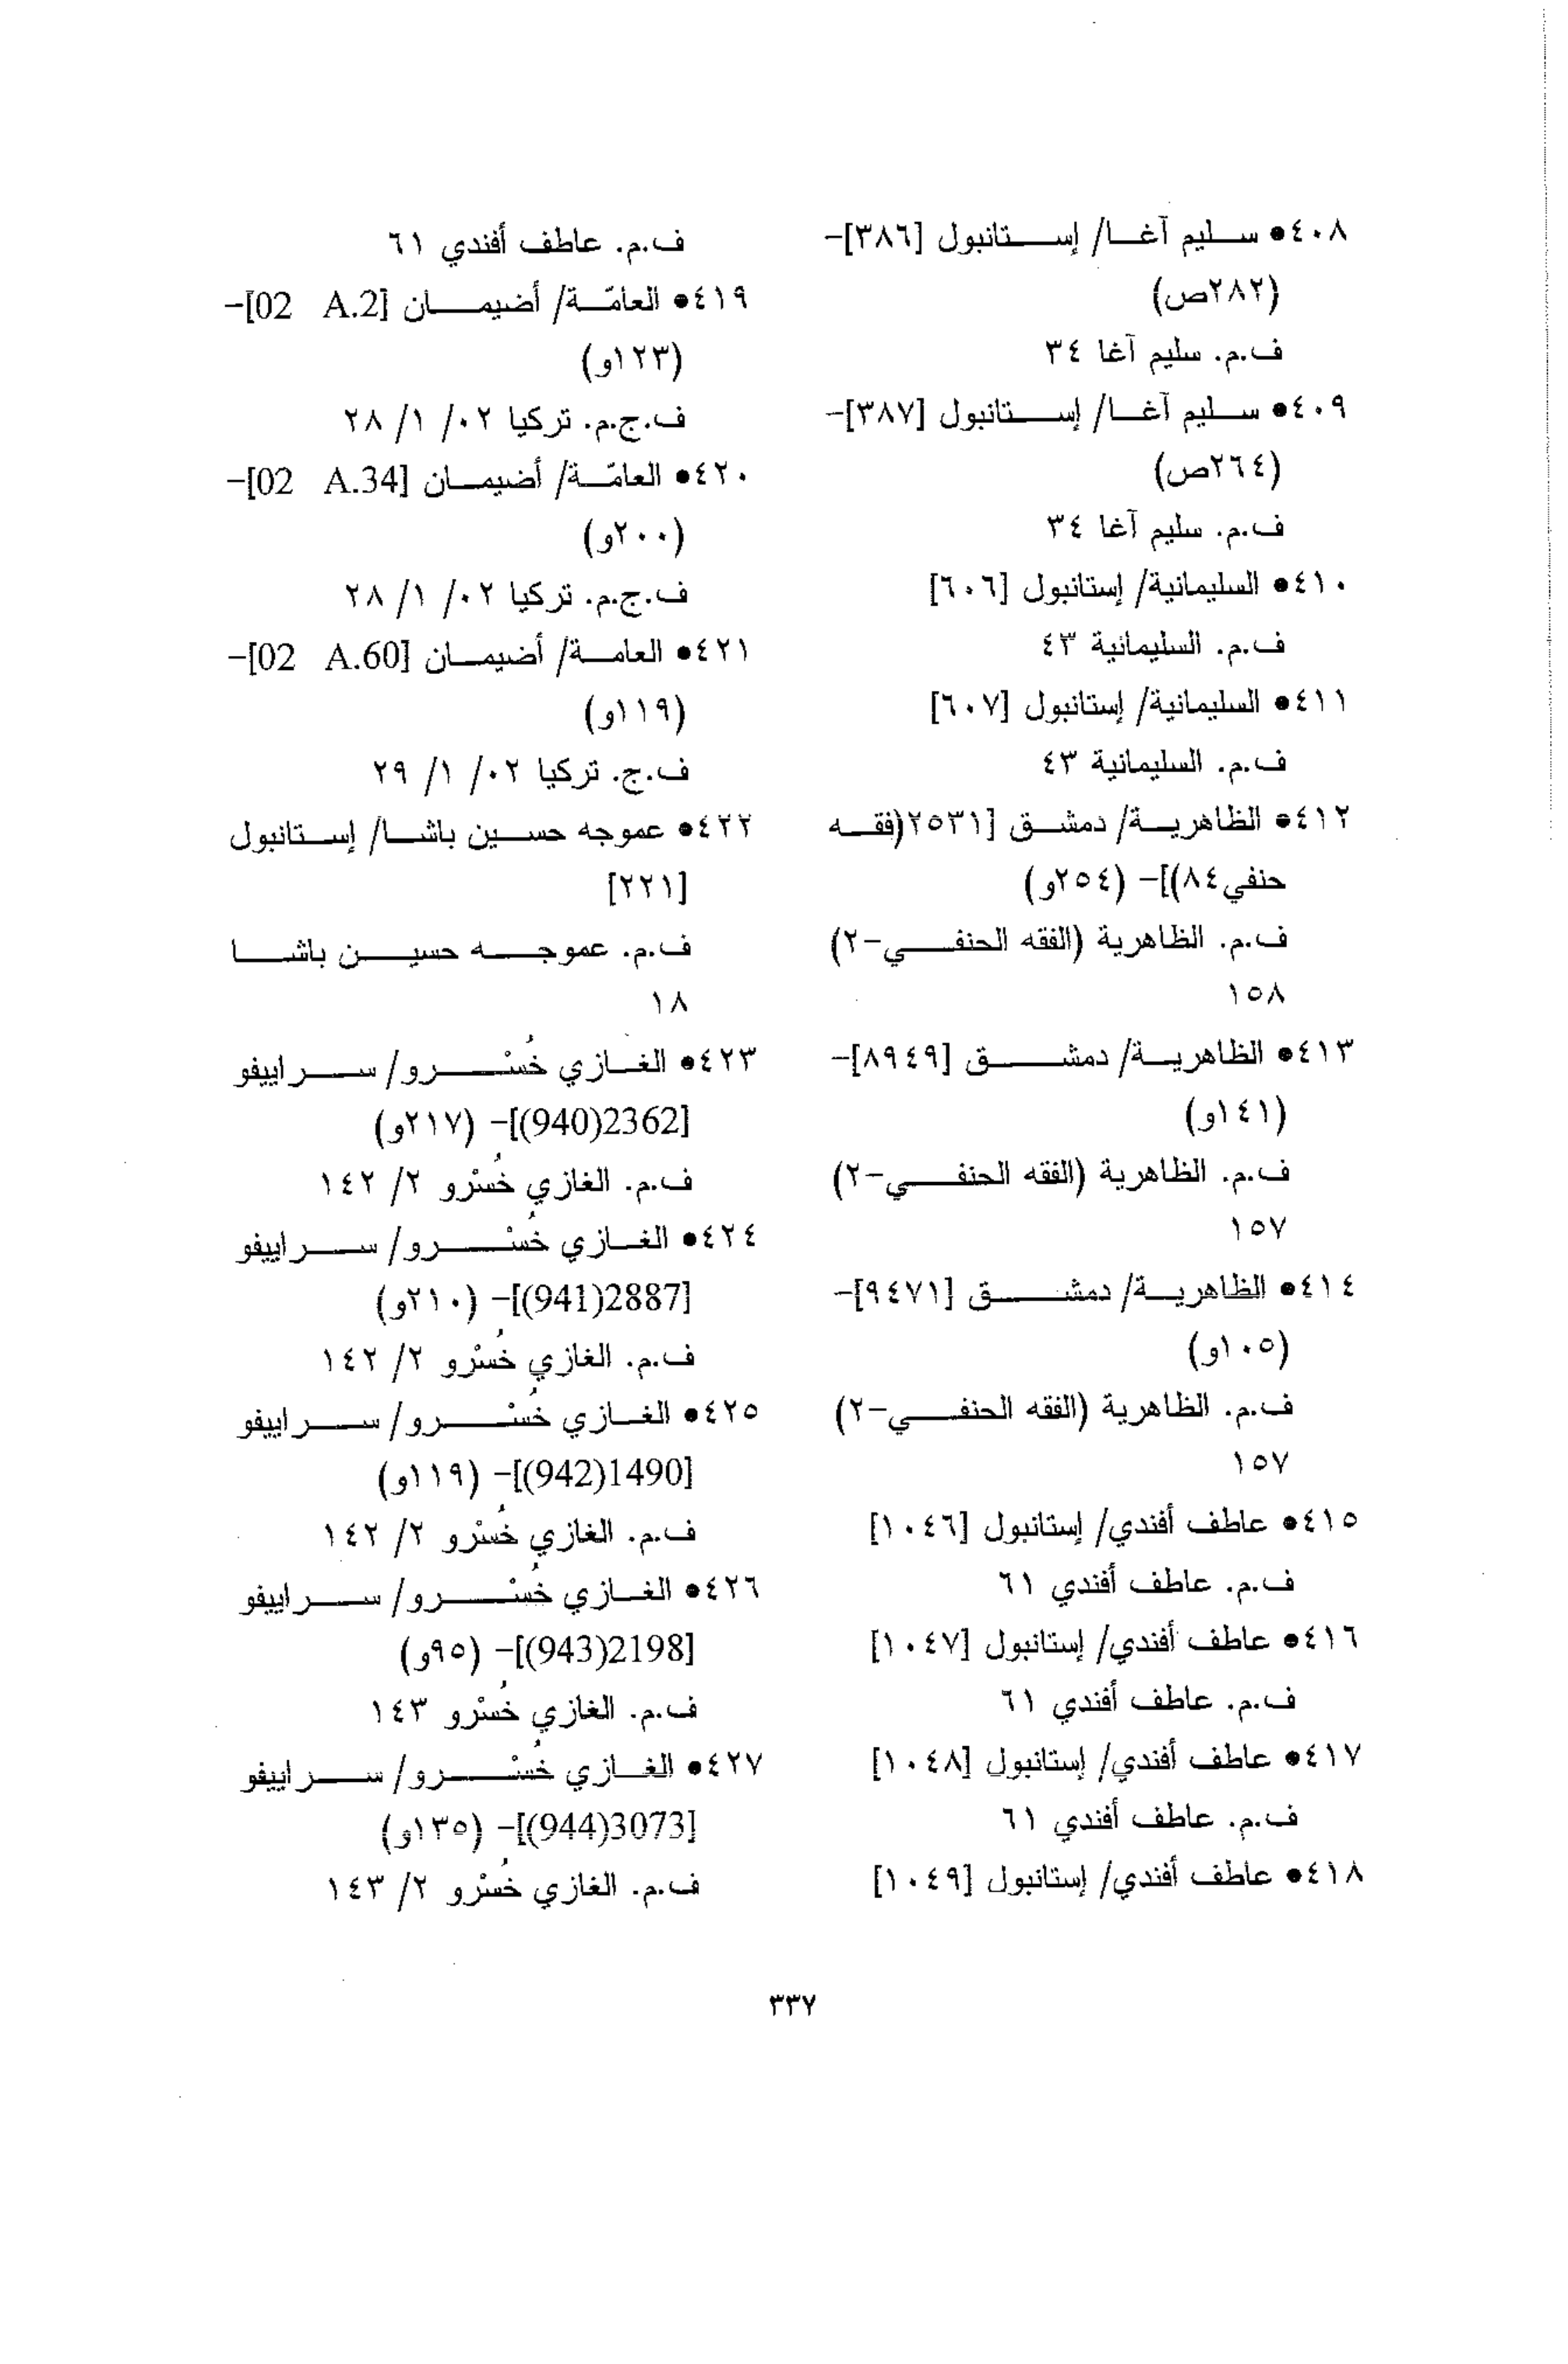 ٤٠٨● سليم آغا/ إستانبول [٣٨٦]-
(٢٨٢ص)
ف.م. سليم آغا ٣٤
٤٠٩● سليم آغا/ إستانبول [٣٨٧]-
(٢٦٤ص)
ف.م. سليم آغا ٣٤
٤١٠● السليمانية/ إستانبول [٦٠٦]
ف.م. السليمانية ٤٣
٤١١● السليمانية/ إستانبول [٦٠٧]
ف.م. السليمانية ٤٣
٤١٢● الظاهرية/ دمشق [٢٥٣١(فقه
حنفي٨٤)]- (٢٥٤و)
ف.م. الظاهرية (الفقه الحنفي-٢)
١٥٨
٤١٣● الظاهرية/ دمشق [٨٩٤٩]-
(١٤١و)
ف.م. الظاهرية (الفقه الحنفي-٢)
١٥٧
٤١٤● الظاهرية/ دمشق [٩٤٧١]-
(١٠٥و)
ف.م. الظاهرية (الفقه الحنفي-٢)
١٥٧
٤١٥● عاطف أفندي/ إستانبول [١٠٤٦]
ف.م. عاطف أفندي ٦١
٤١٦● عاطف أفندي/ إستانبول [١٠٤٧]
ف.م. عاطف أفندي ٦١
٤١٧● عاطف أفندي/ إستانبول [١٠٤٨]
ف.م. عاطف أفندي ٦١
٤١٨● عاطف أفندي/ إستانبول [١٠٤٩]
ف.م. عاطف أفندي ٦١
٤١٩● العامّة/ أضيمان [02 A.2]-
(١٢٣و)
ف.ج.م. تركيا ٠٢/ ١/ ٢٨
٤٢٠● العامّة/ أضيمان [02 A.34]-
(٢٠٠و)
ف.ج.م. تركيا ٠٢/ ١/ ٢٨
٤٢١● العامة/ أضيمان [02 A.60]-
(١١٩و)
ف.ج. تركيا ٠٢/ ١/ ٢٩
٤٢٢● عموجه حسين باشا/ إستانبول
[٢٢١]
ف.م. عموجه حسين باشا
١٨
٤٢٣● الغازي خُسْرو/ سراييفو
[2362(940)]- (٢١٧و)
ف.م. الغازي خُسْرو ٢/ ١٤٢
٤٢٤● الغازي خُسْرو/ سراييفو
[2887(941)]- (٢١٠و)
ف.م. الغازي خُسْرو ٢/ ١٤٢
٤٢٥● الغازي خُسْرو/ سراييفو
[1490(942)]- (١١٩و)
ف.م. الغازي خُسْرو ٢/ ١٤٢
٤٢٦● الغازي خُسْرو/ سراييفو
[2198(943)]- (٩٥و)
ف.م. الغازي خُسْرو ١٤٣
٤٢٧● الغازي خُسْرو/ سراييفو
[3073(944)]- (١٣٥و)
ف.م. الغازي خُسْرو ٢/ ١٤٣
٣٣٧